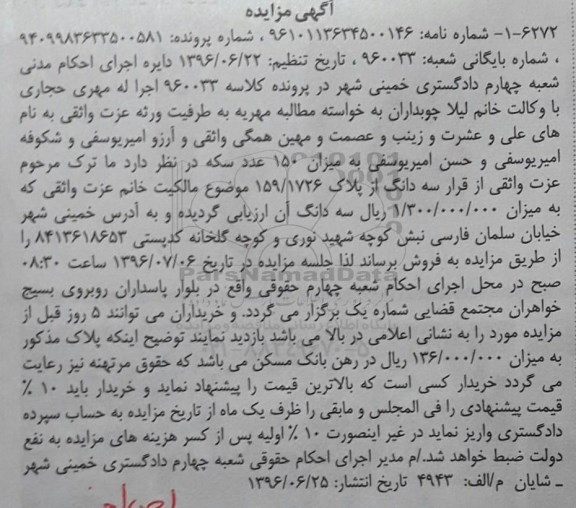 آگهی مزایده
۱-۶۲۷۲- شماره نامه: ۹۶۱۰۱۱۳۶۳۴۵۰۰۱۴۶ ، شماره پرونده: ۹۴۰۹۹۸۳۶۳۳۵۰۰۵۸۱
، شماره بایگانی شعبه: ۹۶۰۰۳۳ ، تاریخ تنظیم: ۱۳۹۶/۰۶/۲۲ دایره اجرای احکام مدنی
شعبه چهارم دادگستری خمینی شهر در پرونده کلاسه ۹۶۰۰۳۳ اجرا له مهری حجاری
با وکالت خانم لیلا چوبداران به خواسته مطالبه مهریه به طرفیت ورثه عزت واثقی به نام
های علی و عشرت و زینب و عصمت و مهین همگی واثقی و آرزو امیریوسفی و شکوفه
امیریوسفی و حسن امیریوسفی به میزان ۱۵۰ عدد سکه در نظر دارد ما ترک مرحوم
عزت واثقی از قرار سه دانگ از پلاک ۱۵۹/۱۷۲۶ موضوع مالکیت خانم عزت واثقی که
به میزان ۱/۳۰۰/۰۰۰/۰۰۰ ریال سه دانگ آن ارزیابی گردیده و به آدرس خمینی شهر
خیابان سلمان فارسی نبش کوچه شهید نوری و کوچه گلخانه کدپستی ۸۴۱۳۶۱۸۶۵۳ را
از طریق مزایده به فروش برساند لذا جلسه مزایده در تاریخ ۱۳۹۶/۰۷/۰۶ ساعت ۰۸:۳۰
صبح در محل اجرای احکام شعبه چهارم حقوقی واقع در بلوار پاسداران روبروی بسیج
خواهران مجتمع قضایی شماره یک برگزار می گردد. و خریداران می توانند ۵ روز قبل از
مزایده مورد را به نشانی اعلامی در بالا می باشد بازدید نمایند توضیح اینکه پلاک مذکور
به میزان ۱۳۶/۰۰۰/۰۰۰ ریال در رهن بانک مسکن می باشد که حقوق مرتهنه نیز رعایت
می گردد خریدار کسی است که بالاترین قیمت را پیشنهاد نماید و خریدار باید ۱۰ ٪
قیمت پیشنهادی را فی المجلس و مابقی را ظرف یک ماه از تاریخ مزایده به حساب سپرده
دادگستری واریز نماید در غیر اینصورت ۱۰ ٪ اولیه پس از کسر هزینه های مزایده به نفع
دولت ضبط خواهد شد./م مدیر اجرای احکام حقوقی شعبه چهارم دادگستری خمینی شهر
ـ شایان م/الف: ۴۹۴۳ تاریخ انتشار: ۱۳۹۶/۰۶/۲۵
ParsNamadData